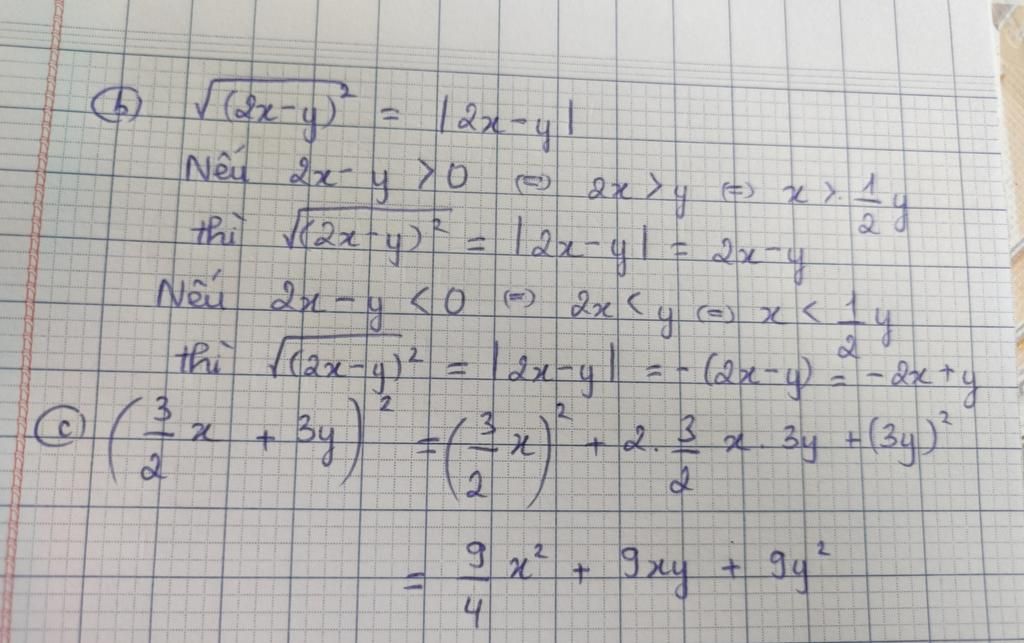 b) √(2x-y)² = |2x-y|
Nếu 2x-y > 0 (=) 2x > y (=) x > 1/2 y
thì √(2x-y)² = |2x-y| = 2x-y
Nếu 2x-y < 0 (=) 2x < y (=) x < 1/2 y
thì √(2x-y)² = |2x-y| = -(2x-y) = -2x+y
c) (3/2 x + 3y)² = (3/2 x)² + 2. 3/2 x . 3y + (3y)²
= 9/4 x² + 9xy + 9y²